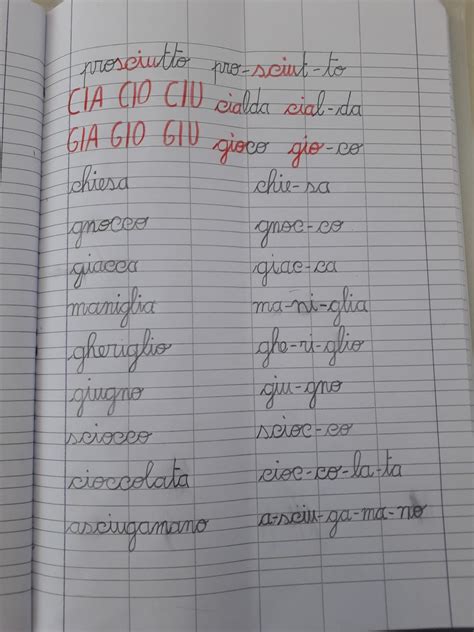 prosciutto pro-sciut-to
CIA CIO CIU cialda cial-da
GIA GIO GIU gioco gio-co
chiesa chie-sa
gnocco gnoc-co
giacca giac-ca
maniglia ma-ni-glia
gheriglio ghe-ri-glio
giugno giu-gno
sciocco scioc-co
cioccolata cioc-co-la-ta
asciugamano a-sciu-ga-ma-no